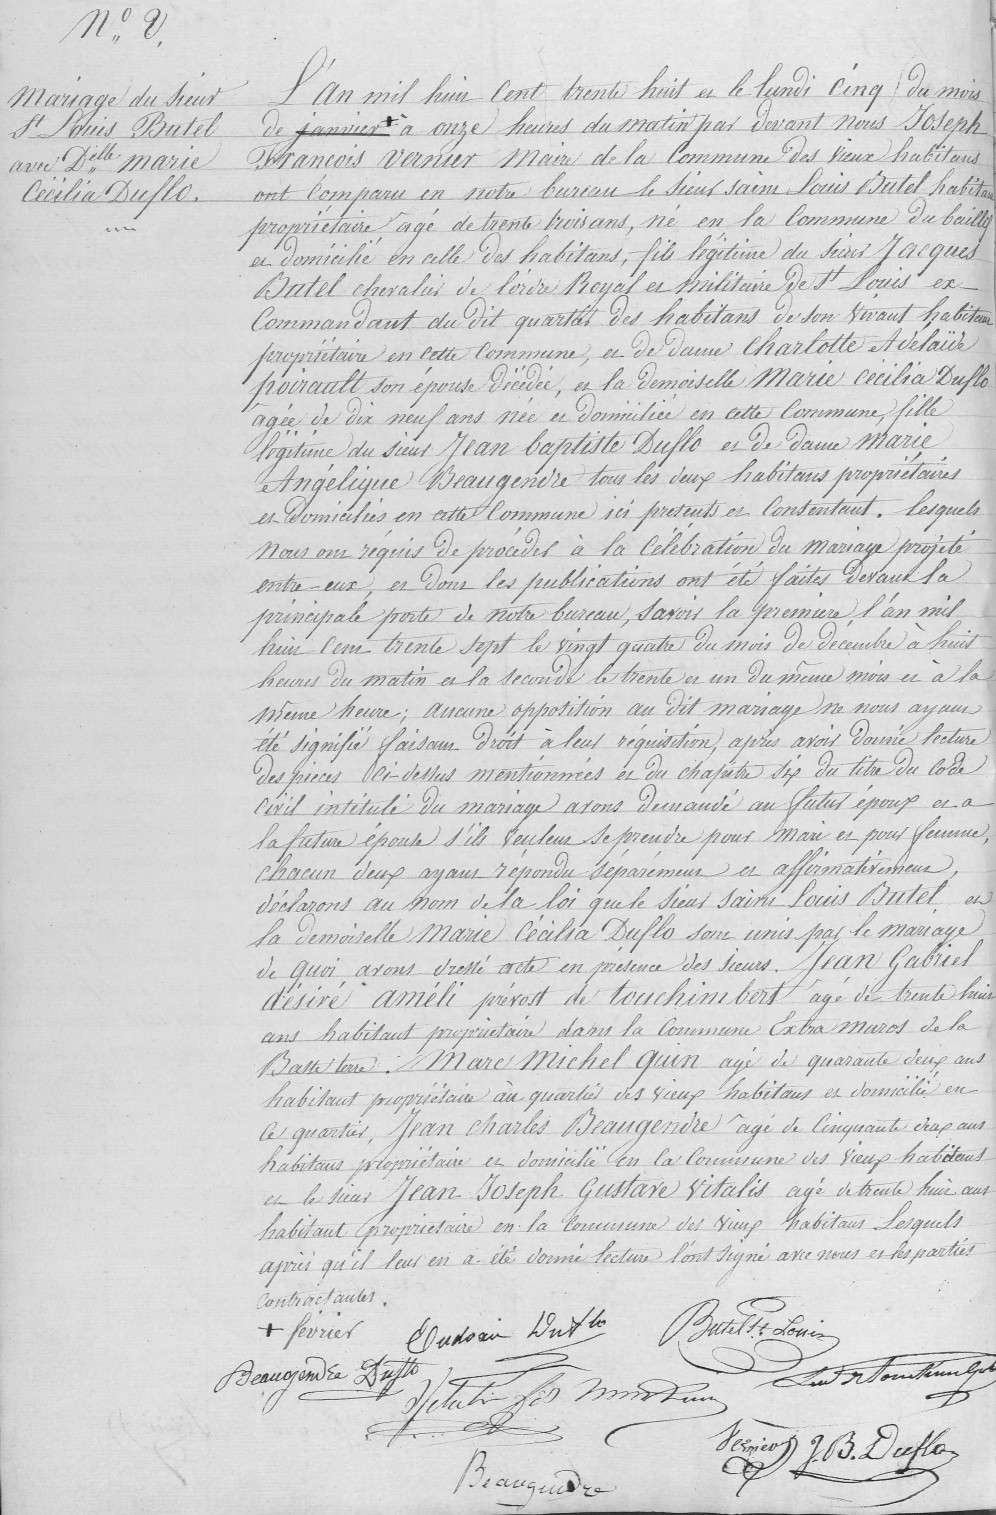 N.° 2.
Mariage du Sieur
St Louis Butel
avec Delle marie
Cécilia Duflo.
L'An mil huit cent trente huit et le lundi cinq du mois
de janvier + à onze heures du matin par devant nous Joseph
François Vernier Maire de la Commune des vieux habitans
ont Comparu en notre bureau le sieur saint Louis Butel habitant
propriétaire agé de trente trois ans, né en la Commune du baillif
et domicilié en celle des habitans, fils légitime du sieur Jacques
Butel chevalier de l'ordre Royal et militaire de St Louis ex-
Commandant du dit quartier des habitans de son vivant habitant
propriétaire en cette Commune, et de dame Charlotte Adélaïde
poirault son épouse décédée, et la demoiselle Marie Cécilia Duflo
agée de dix neuf ans née et domiciliée en cette Commune, fille
légitime du sieur Jean baptiste Duflo et de dame Marie
Angélique Beaugendre tous les deux habitans propriétaires
et domiciliés en cette Commune ici presents et Consentant. Lesquels
Nous ont réquis de procéder à la Célébration du mariage projeté
entre-eux, et dont les publications ont été faites devant la
principale porte de notre bureau, Savoir la premiere l'an mil
huit cent trente sept le vingt quatre du mois de décembre à huit
heures du matin et la seconde le trente et un du même mois et à la
même heure; aucune opposition au dit mariage ne nous ayant
été signifié faisant droit à leur réquisition, après avoir donné lecture
des pieces ci-dessus mentionnées et du chapitre six du titre du code
Civil intitulé du mariage avons demandé au futur époux et a
la future épouse s'ils veulent se prendre pour mari et pour femme,
chacun deux ayant répondu séparément et affirmativement,
déclarons au nom de la loi que le sieur saint Louis Butel et
la demoiselle Marie Cécilia Duflo sont unis par le mariage
de quoi avons dressé acte en présence des sieurs. Jean Gabriel
désiré améli prévost de touchimbert agé de trente huit
ans habitant propriétaire dans la Commune Extra muros de la
Basse terre. Marc Michel Guin agé de quarante deux ans
habitant propriétaire au quartier des vieux habitans et domicilié en
Ce quartier, Jean Charles Beaugendre agé de Cinquante deux ans
habitans propriétaire et domicilié en la Commune des vieux habitans
et le sieur Jean Joseph Gustave Vitalis agé de trente huit ans
habitant propriétaire en la Commune des vieux habitans Lesquels
après qu'il leur en a été donné lecture l'ont signé avec nous et les parties
Contractantes.
+ février
Duflo Butel St Louis
Beaugendre Duflo
Vernier J. B. Duflo
Beaugendre